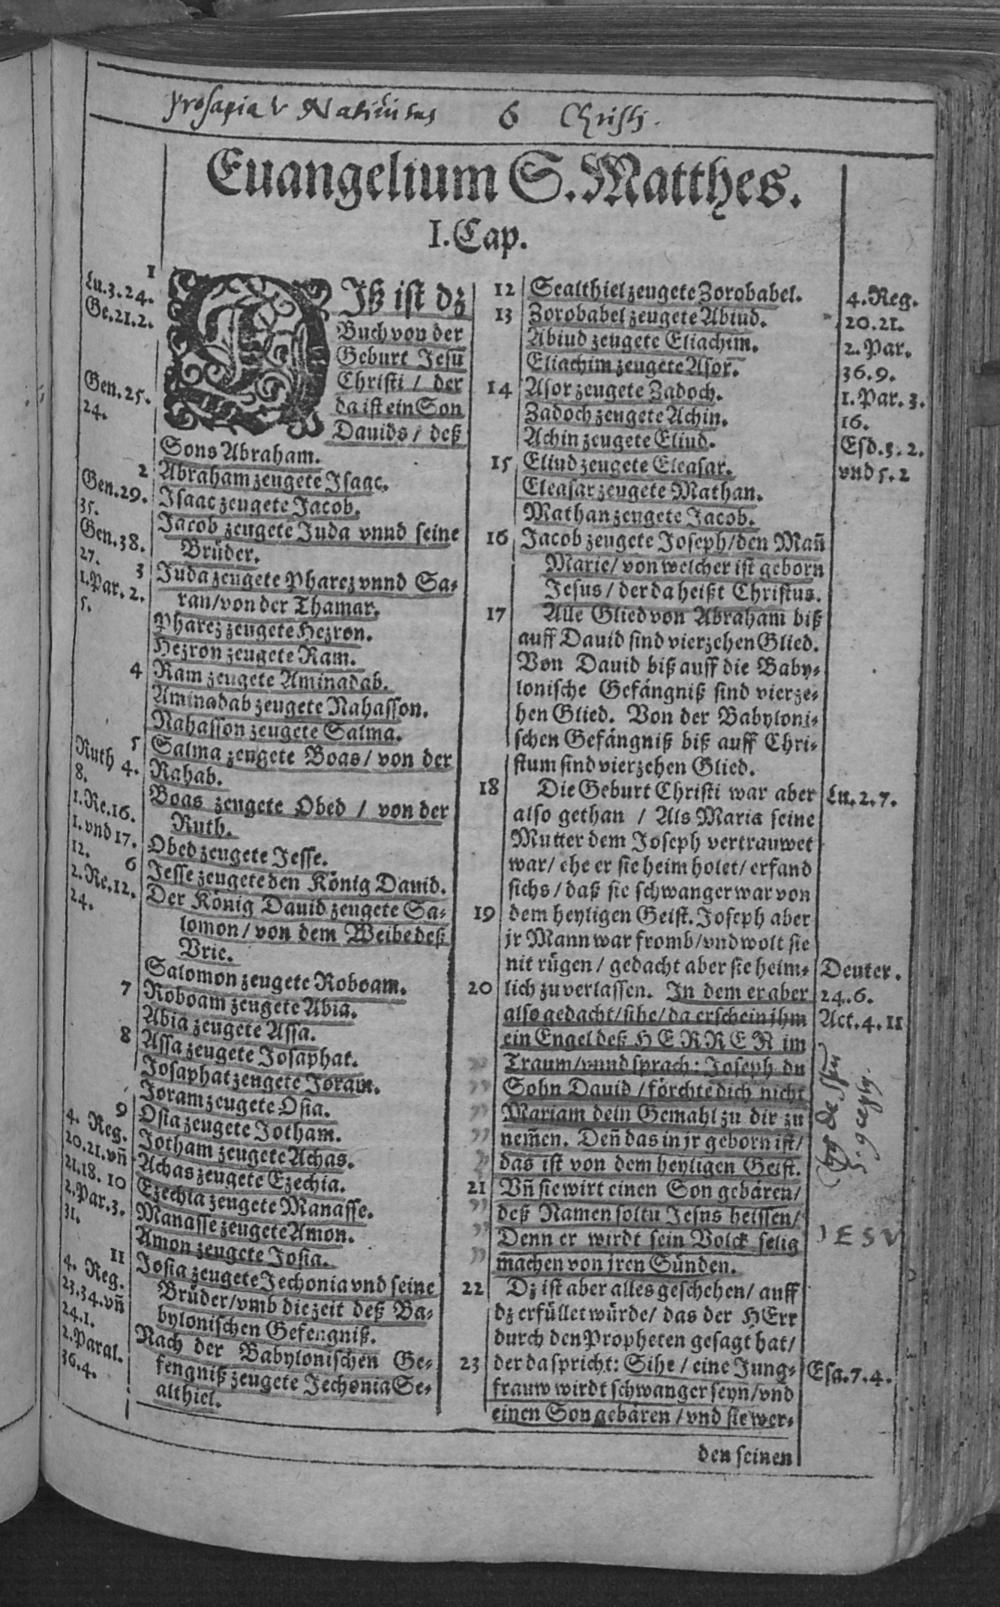 Prosapia & Natiuitas 6 Christi.
Euangelium S. Matthes.
I. Cap.
1
Lu.3.24.
Ge.21.2.
Gen.25.
24.
2
Gen.29.
35.
Gen.38.
27.
3
1.Par.2.
5.
4
5
Ruth 4.
8.
1.Re.16.
1. vnd 17.
12.
6
2.Re.12.
24.
7
8
9
4. Reg.
20.21.vñ
21.18. 10
2.Par.3.
31.
11
4. Reg.
23.34.vñ
24.1.
2.Paral.
36.4.
DIß ist dz
Buch von der
Geburt Jesu
Christi / der
da ist ein Son
Dauids / deß
Sons Abraham.
Abraham zeugete Isaac.
Isaac zeugete Jacob.
Jacob zeugete Juda vnnd seine
Brüder.
Juda zeugete Pharez vnnd Sa-
ran/von der Thamar.
Pharez zeugete Hezron.
Hezron zeugete Ram.
Ram zeugete Aminadab.
Aminadab zeugete Nahasson.
Nahasson zeugete Salma.
Salma zeugete Boas / von der
Rahab.
Boas zeugete Obed / von der
Ruth.
Obed zeugete Jesse.
Jesse zeugete den König Dauid.
Der König Dauid zeugete Sa-
lomon / von dem Weibe deß
Vrie.
Salomon zeugete Roboam.
Roboam zeugete Abia.
Abia zeugete Assa.
Assa zeugete Josaphat.
Josaphat zeugete Joram.
Joram zeugete Osia.
Osia zeugete Jotham.
Jotham zeugete Achas.
Achas zeugete Ezechia.
Ezechia zeugete Manasse.
Manasse zeugete Amon.
Amon zeugete Josia.
Josia zeugete Jechonia vnd seine
Brüder/vmb die zeit deß Ba-
bylonischen Gefengniß.
Nach der Babylonischen Ge-
fengniß zeugete Jechonia Se-
althiel.
12 Sealthiel zeugete Zorobabel.
13 Zorobabel zeugete Abiud.
Abiud zeugete Eliachim.
Eliachim zeugete Asor.
14 Asor zeugete Zadoch.
Zadoch zeugete Achin.
Achin zeugete Eliud.
15 Eliud zeugete Eleasar.
Eleasar zeugete Mathan.
Mathan zeugete Jacob.
16 Jacob zeugete Joseph/den Mañ
Marie/ von welcher ist geborn
Jesus / der da heißt Christus.
17 Alle Glied von Abraham biß
auff Dauid sind vierzehen Glied.
Von Dauid biß auff die Baby-
lonische Gefängniß sind vierze-
hen Glied. Von der Babyloni-
schen Gefängniß biß auff Chri-
stum sind vierzehen Glied.
18 Die Geburt Christi war aber
also gethan / Als Maria seine
Mutter dem Joseph vertrauwet
war/ ehe er sie heim holet/ erfand
sichs / daß sie schwanger war von
19 dem heyligen Geist. Joseph aber
jr Mann war fromb/vnd wolt sie
nit rügen / gedacht aber sie heim-
20 lich zu verlassen. In dem er aber
also gedacht/ sihe/ da erschein jhm
ein Engel deß HERREN im
Traum/vnnd sprach: Joseph du
Sohn Dauid / förchte dich nicht
Mariam dein Gemahl zu dir zu
nem̃en. Deñ das in jr geborn ist/
das ist von dem heyligen Geist.
21 Vñ sie wirt einen Son gebären/
deß Namen soltu Jesus heissen/
Denn er wirdt sein Volck selig
machen von jren Sünden.
22 Dz ist aber alles geschehen/ auff
dz erfüllet würde/ das der HErr
durch den Propheten gesagt hat/
23 der da spricht: Sihe / eine Jung-
frauw wirdt schwanger seyn/vnd
einen Son gebären / vnd sie wer-
den seinen
4. Reg.
20.21.
2. Par.
36.9.
1. Par. 3.
16.
Esd.3.2.
vnd 5.2
Lu.2.7.
Deuter.
24.6.
Act.4.11
IESV
Esa.7.4.